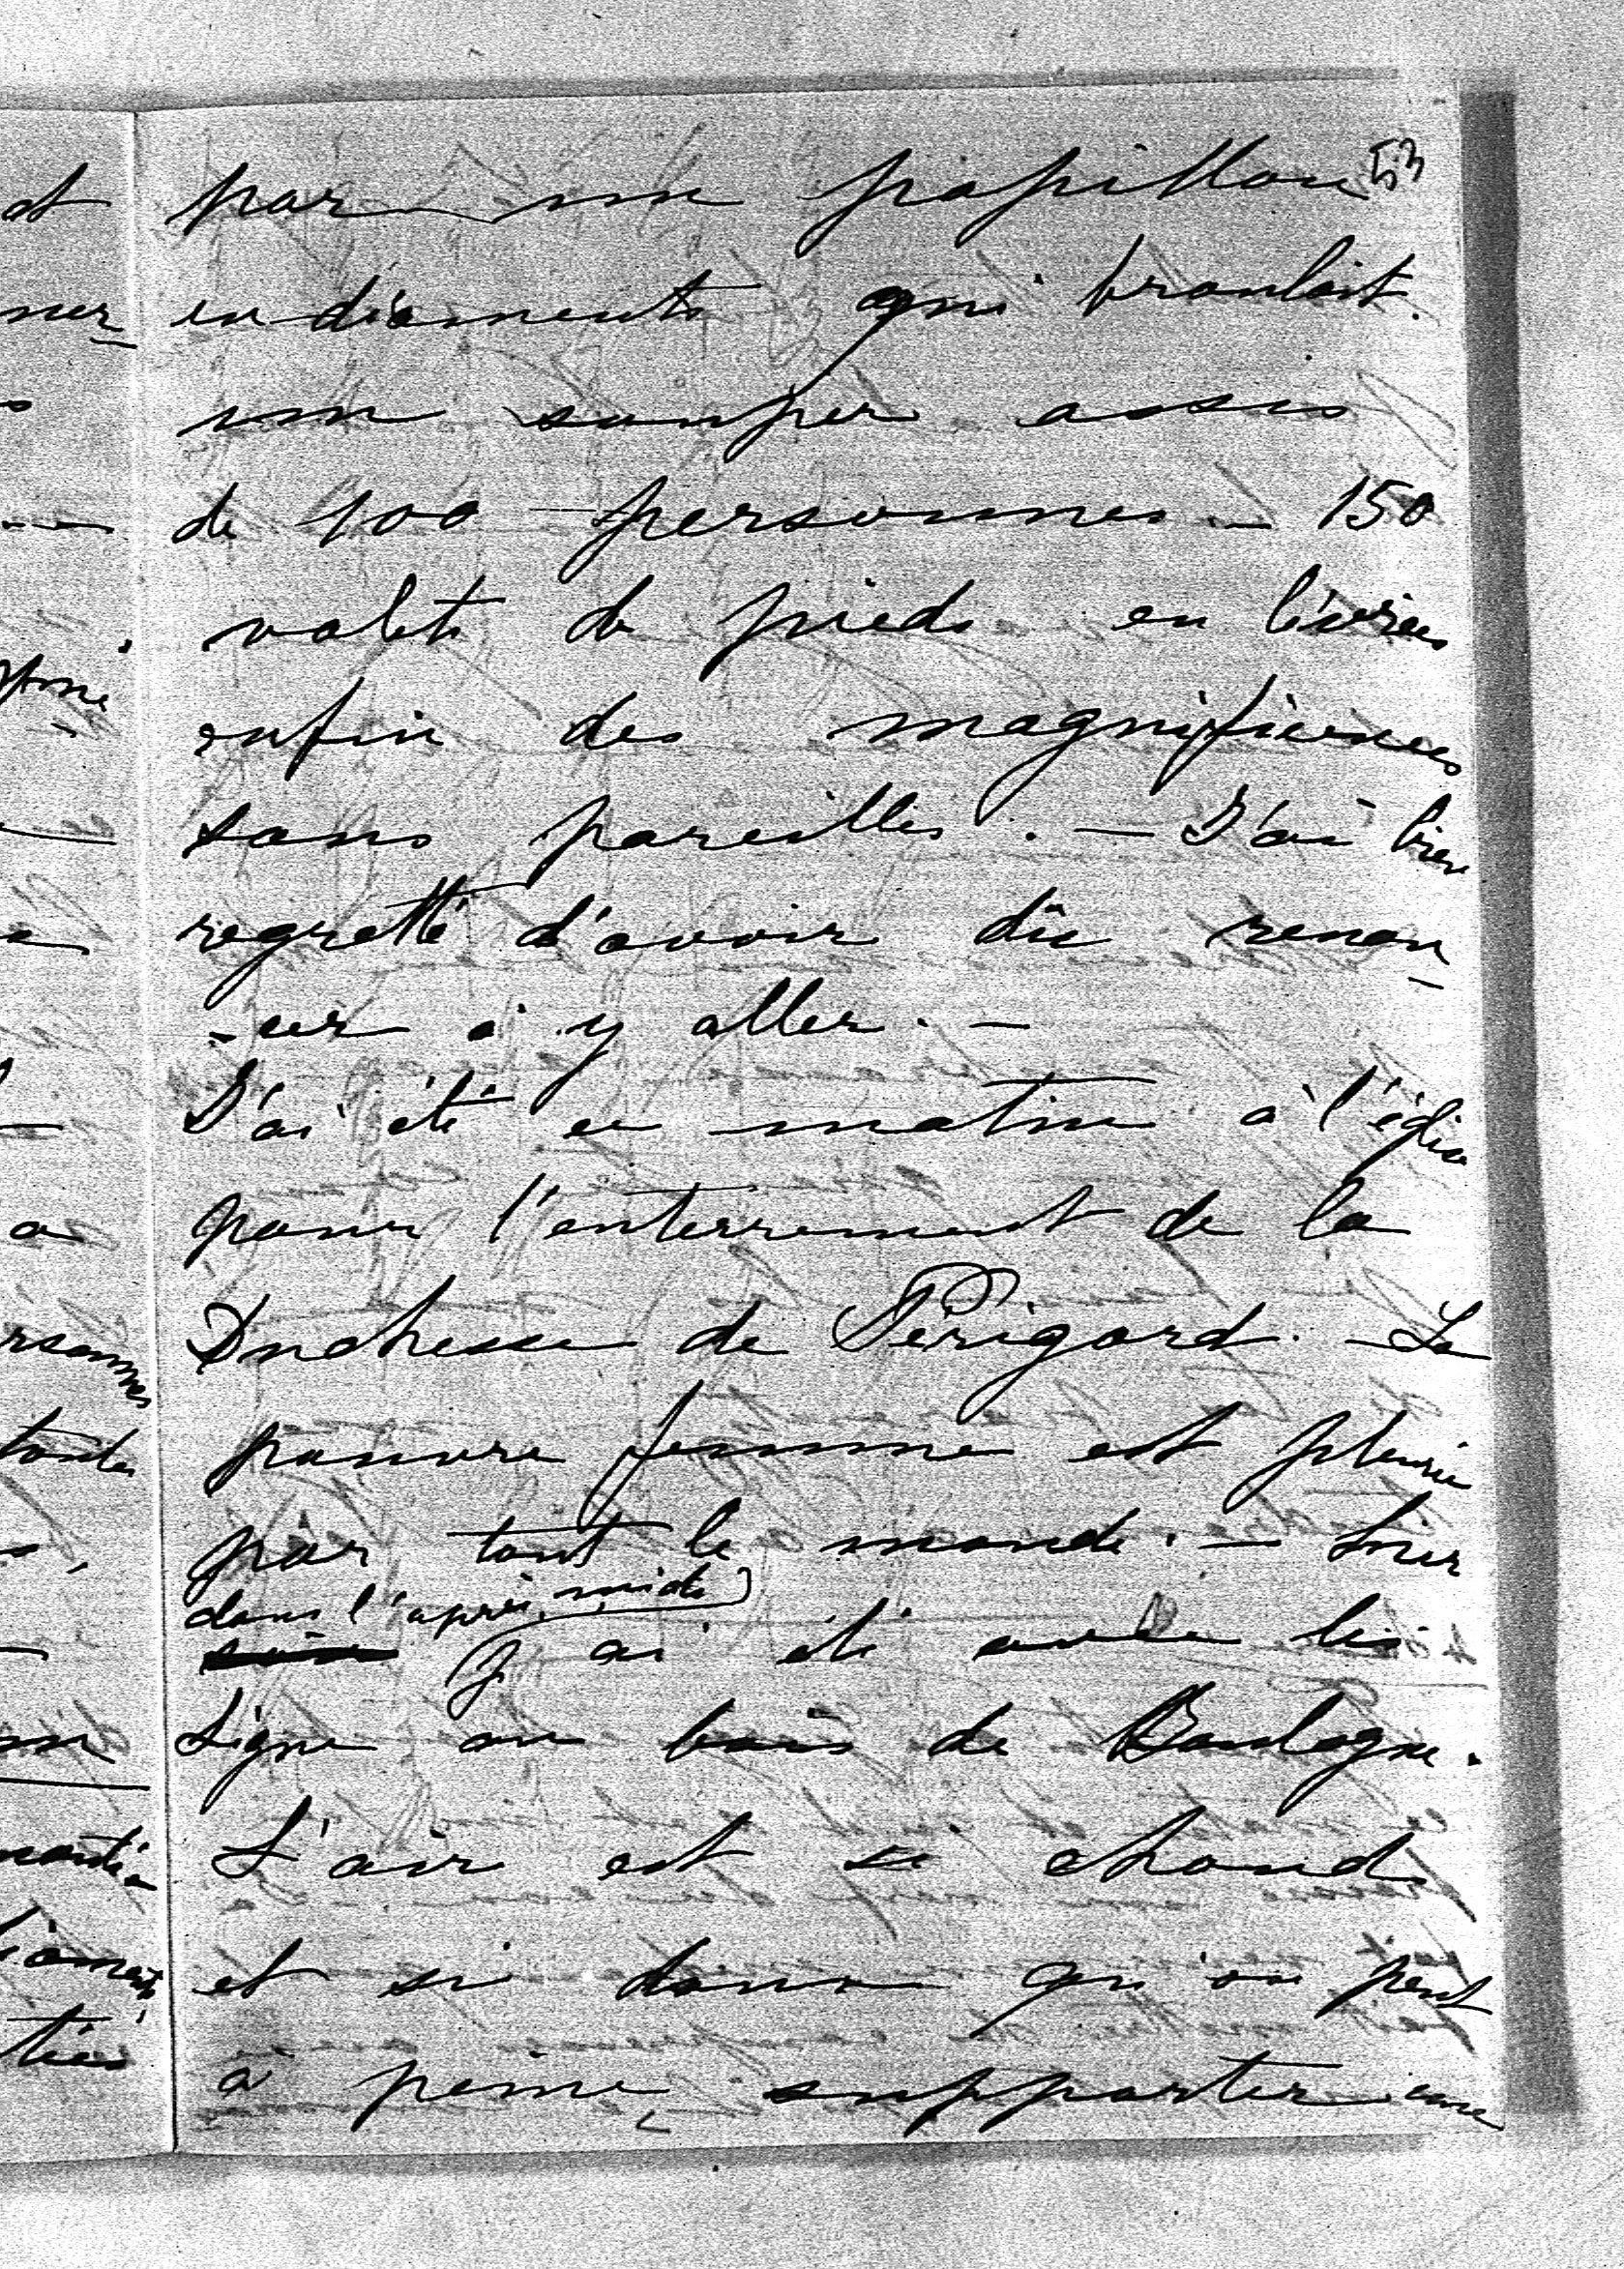 53
par un papillon
en diaments qui branlait.
un souper assis
de 100 personnes. — 150
valets de pieds en livrées
enfin des magnificences
sans pareilles. — J'ai bien
regretté d'avoir dû renon
-cer à y aller. —
J'ai été ce matin à l'église
pour l'enterrement de la
Duchesse de Périgord. — La
pauvre femme est pleurée
par tout le monde. — hier
dans l'après midi
j'ai été avec les
Ligne au bois de Boulogne.
L'air est si chaud
et si doux qu'on peut
à peine supporter une